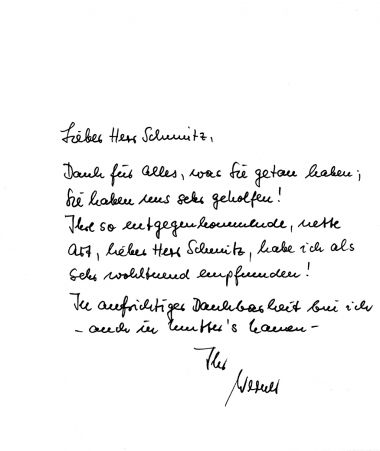 Lieber Herr Schmitz,
Dank für alles, was Sie getan haben;
Sie haben uns sehr geholfen!
Ihre so entgegenkommende, nette
Art, lieber Herr Schmitz, habe ich als
sehr wohltuend empfunden!
In aufrichtiger Dankbarkeit bin ich
- auch in Mutter's Namen -
Ihr